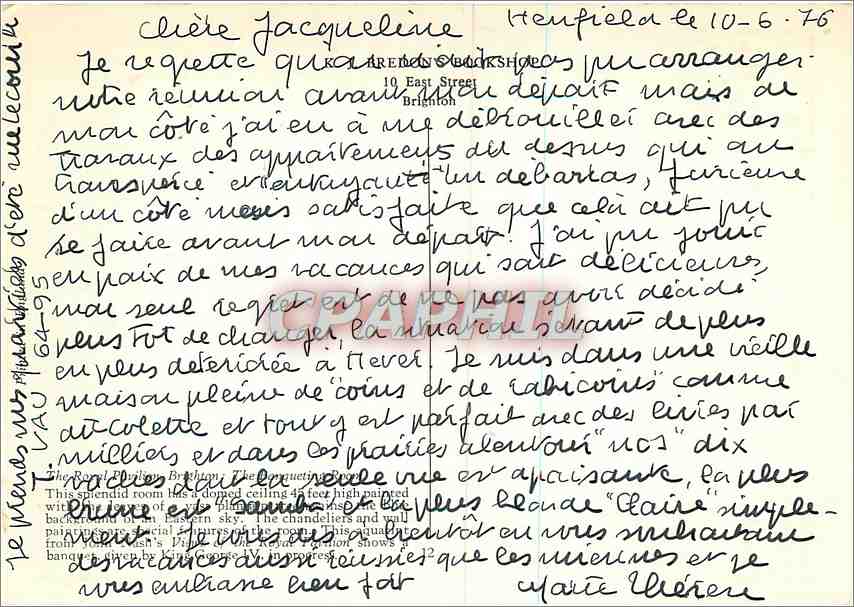 Henfield le 10-6-76
Chère Jacqueline
Je regrette qu'on n'ait pas pu arranger
K. J. BREDON'S BOOKSHOP
10 East Street
Brighton
notre réunion avant mon départ mais de
mon côté j'ai eu à me débrouiller avec des
travaux des appartements du dessus qui on
transpercé et un débarras, furieuse
d'un côté mais satisfaite que celà ait pu
se faire avant mon départ. J'ai pu jouir
en paix de mes vacances qui sont délicieuses,
mon seul regret est de ne pas avoir décidé
plus tot de changer, la situation s'étant de plus
en plus détériorée à Hever. Je suis dans une vieille
maison pleine de "coins et de rabicoins" comme
dit Colette et tout y est parfait avec des livres par
milliers et dans les prairies alentour "nos" dix
vaches dont la seule vue est apaisante, la plus
brune est et la plus blonde "Claire" simple-
ment. Je vous dis à bientôt en vous souhaitant
des vacances aussi réussies que les miennes et je
vous embrasse bien fort
Marie Thérèse
The Royal Pavilion, Brighton: The Banqueting Room
This splendid room has a domed ceiling 45 feet high painted
with the leaves of a vast plantain tree against the
background of an Eastern sky. The chandeliers and wall
paintings are special features of the room. This aquatint
from John Nash's Views of the Royal Pavilion shows a
banquet, given by King George IV, in progress.
12
Je prends mes quartiers d'été
T. VAU 64-95
CPAPHIL